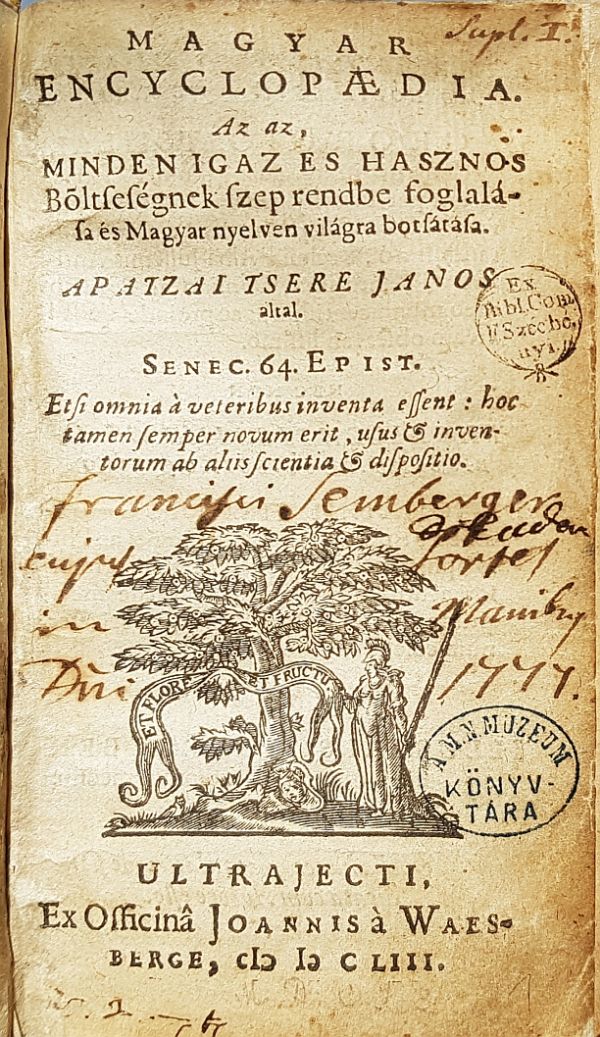 Supl. I.
MAGYAR
ENCYCLOPÆDIA.
Az az,
MINDEN IGAZ ES HASZNOS
Bőltſeſégnek ſzep rendbe foglalá-
ſa és Magyar nyelven világra botsátáſa.
APATZAI TSERE JANOS
altal.
Ex
Bibl. Com.
F. Szecbé.
nyi.
SENEC. 64. EPIST.
Etſi omnia à veteribus inventa eſſent: hoc
tamen ſemper novum erit, uſus & inven-
torum ab aliis ſcientia & diſpoſitio.
Franciſci Semberger
cujus Sortes
in Manibus
Dñi 1777.
ET FLORE ET FRUCTU
A M. N. MUZEUM
KÖNYV-
TÁRA
ULTRAJECTI,
Ex Officinâ JOANNIS à WAES-
BERGE, cIↄ Iↄ CLIII.